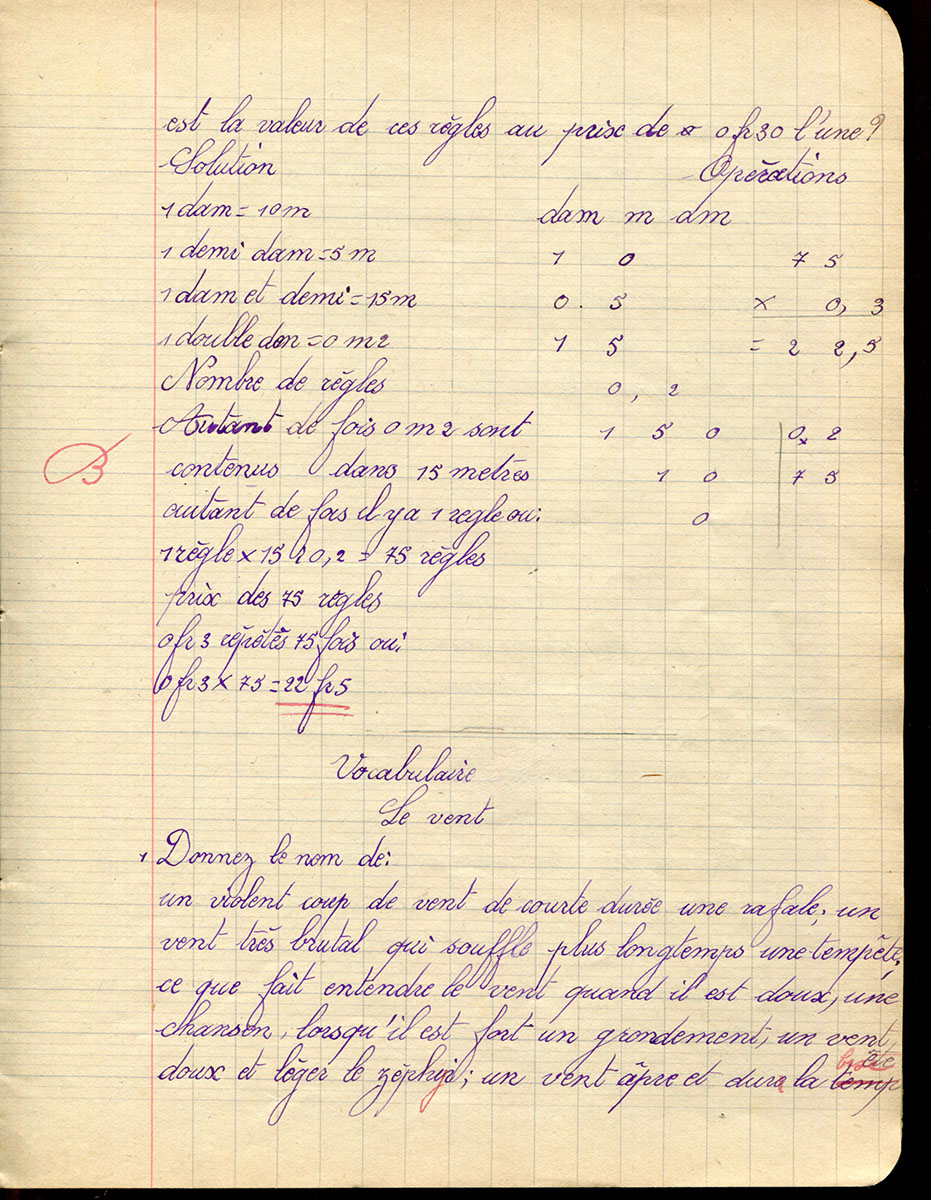 est la valeur de ces règles au prix de 0 fr 30 l'une?
Solution Opérations
1 dam = 10 m dam m dm
1 demi dam = 5 m 1 0 7 5
1 dam et demi = 15 m 0. 5 x 0, 3
1 double dm = 0 m 2 1 5 = 2 2, 5
Nombre de règles 0, 2
Autant de fois 0 m 2 sont 1 5 0 0, 2
contenus dans 15 metrès 1 0 7 5
autant de fois il y a 1 regle ou: 0
B
1 règle x 15 : 0,2 = 75 règles
prix des 75 regles
0 fr 3 repétés 75 fois ou:
0 fr 3 x 75 = 22 fr 5
Vocabulaire
Le vent
1 Donnez le nom de:
un violent coup de vent de courte durée une rafale; un
vent très brutal qui souffle plus longtemps une tempête,
ce que fait entendre le vent quand il est doux, une
chanson, lorsqu'il est fort un grondement, un vent,
doux et léger le zéphir; un vent âpre et dur la temp